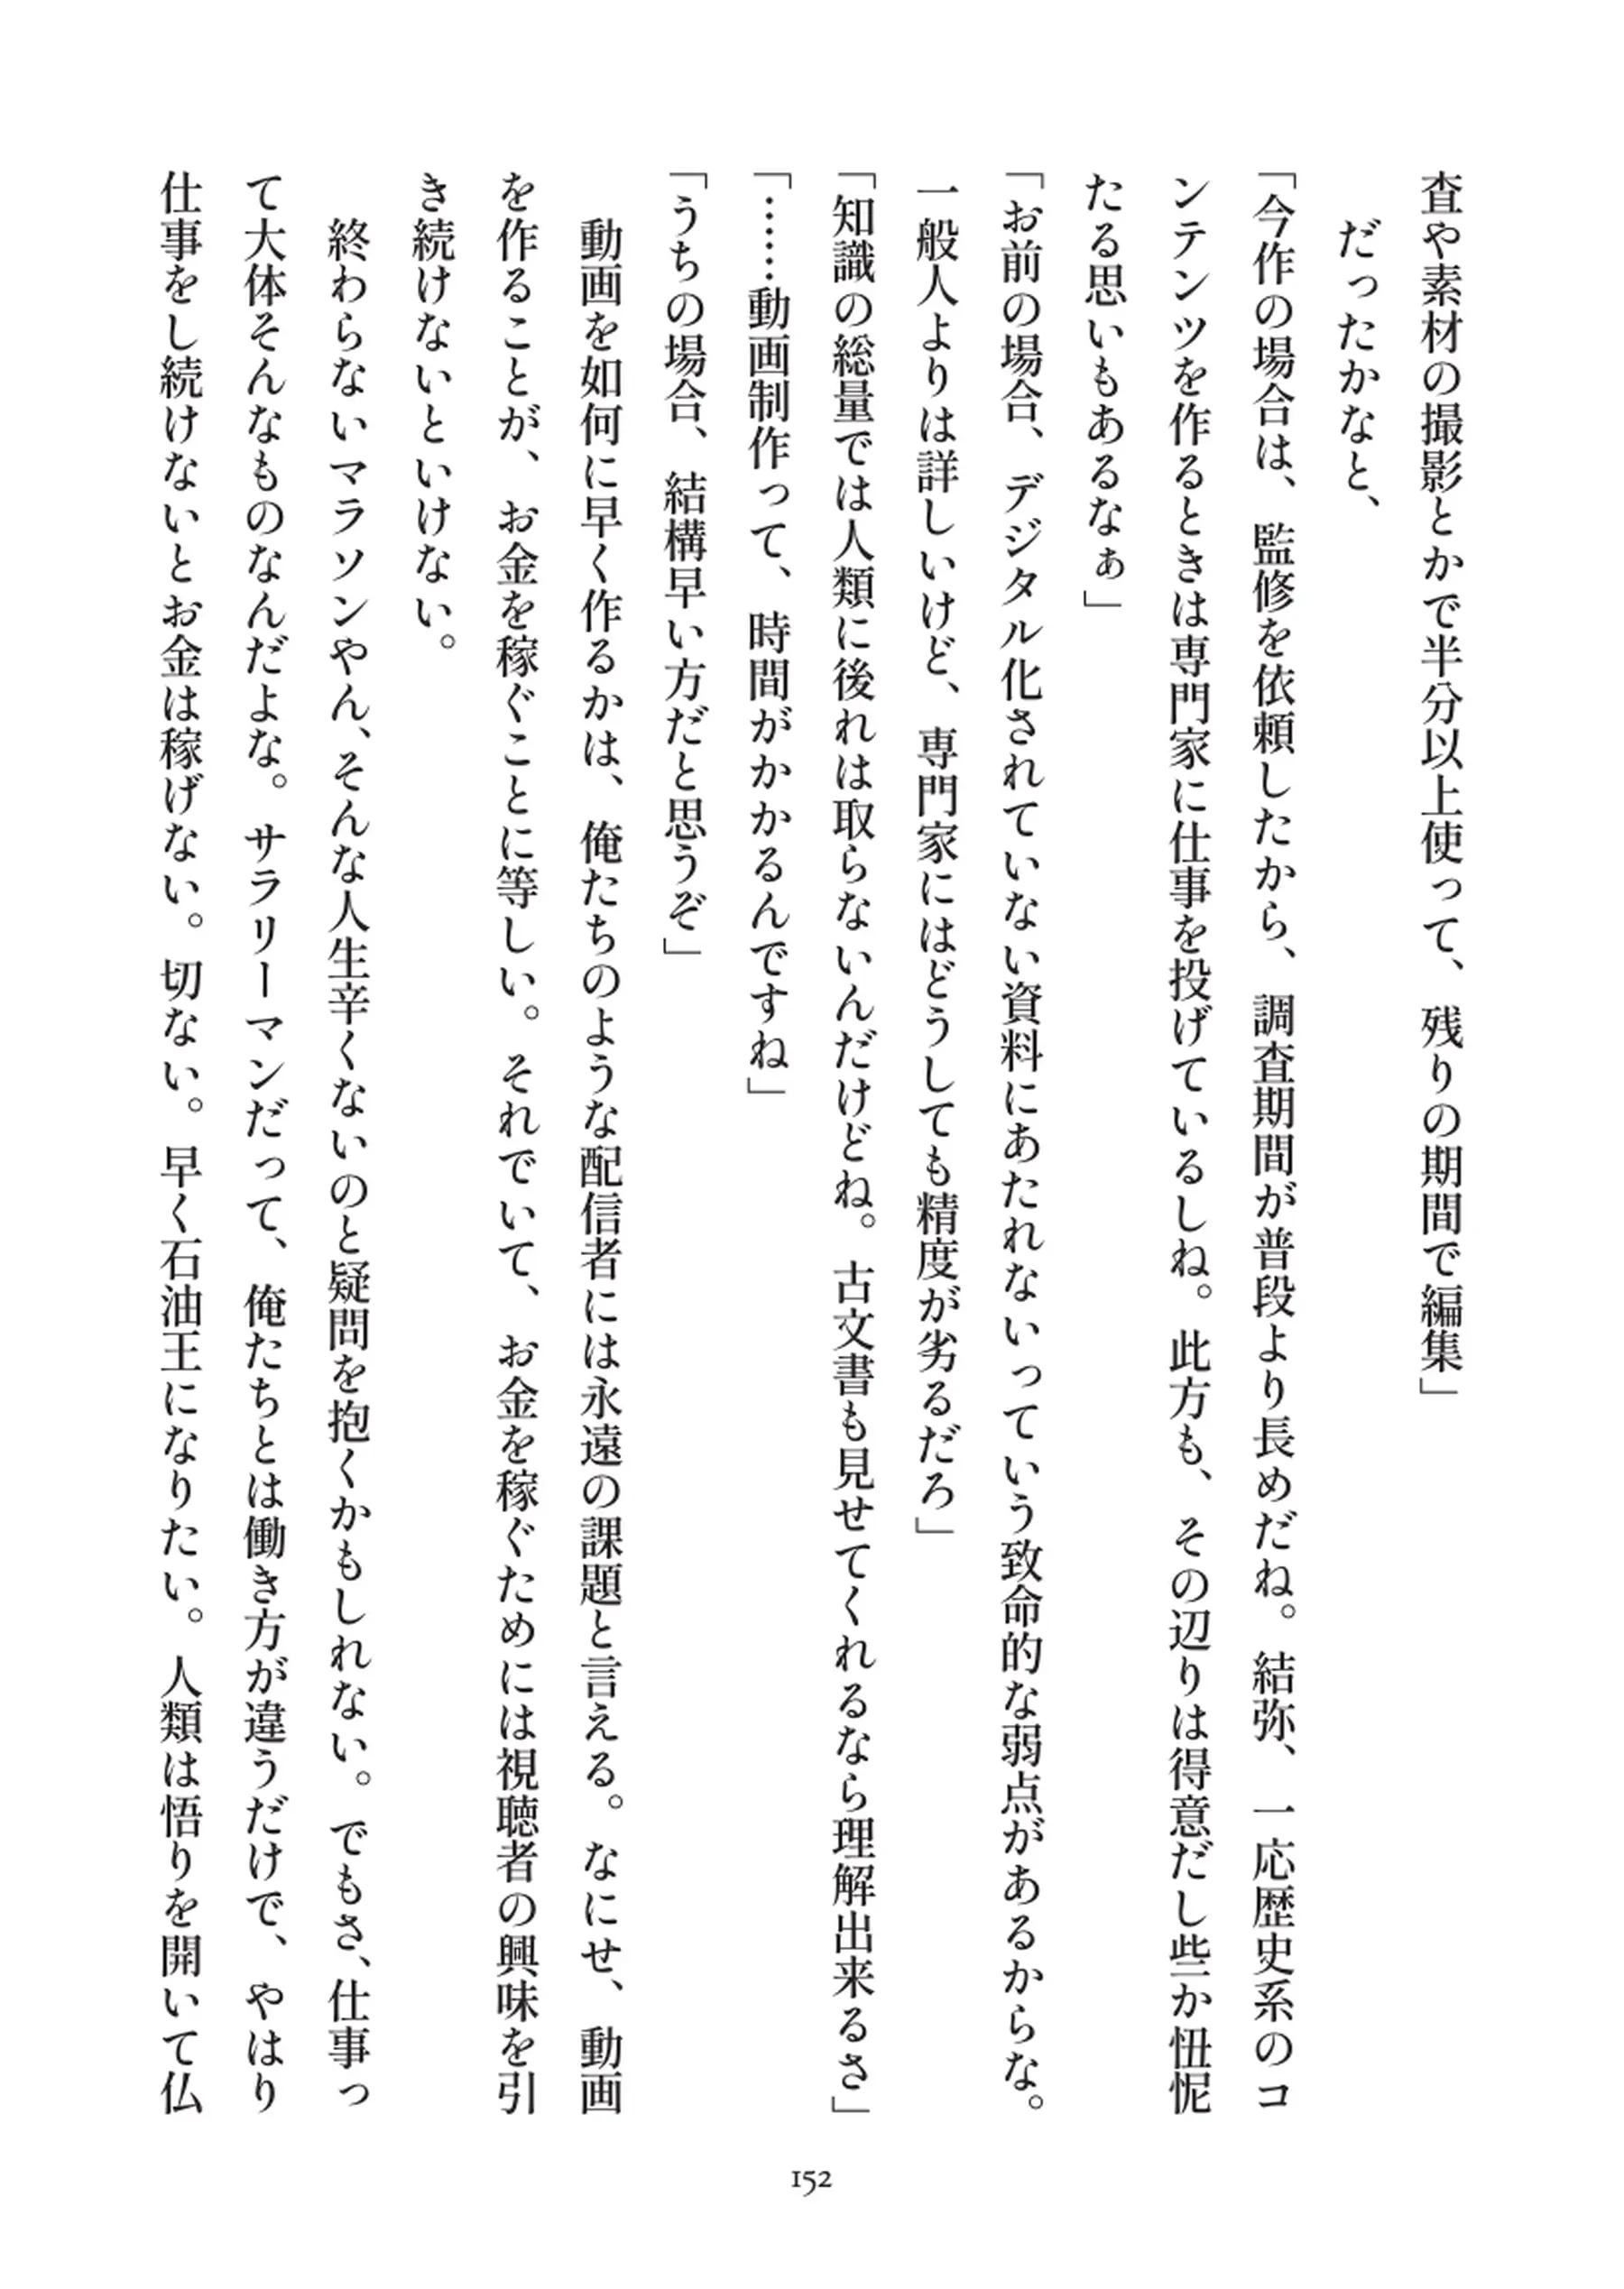 査や素材の撮影とかで半分以上使って、残りの期間で編集」
　だったかなと、
「今作の場合は、監修を依頼したから、調査期間が普段より長めだね。結弥、一応歴史系のコ
ンテンツを作るときは専門家に仕事を投げているしね。此方も、その辺りは得意だし些か忸怩
たる思いもあるなぁ」
「お前の場合、デジタル化されていない資料にあたれないっていう致命的な弱点があるからな。
一般人よりは詳しいけど、専門家にはどうしても精度が劣るだろ」
「知識の総量では人類に後れは取らないんだけどね。古文書も見せてくれるなら理解出来るさ」
「……動画制作って、時間がかかるんですね」
「うちの場合、結構早い方だと思うぞ」
　動画を如何に早く作るかは、俺たちのような配信者には永遠の課題と言える。なにせ、動画
を作ることが、お金を稼ぐことに等しい。それでいて、お金を稼ぐためには視聴者の興味を引
き続けないといけない。
　終わらないマラソンやん、そんな人生辛くないのと疑問を抱くかもしれない。でもさ、仕事っ
て大体そんなものなんだよな。サラリーマンだって、俺たちとは働き方が違うだけで、やはり
仕事をし続けないとお金は稼げない。切ない。早く石油王になりたい。人類は悟りを開いて仏
152